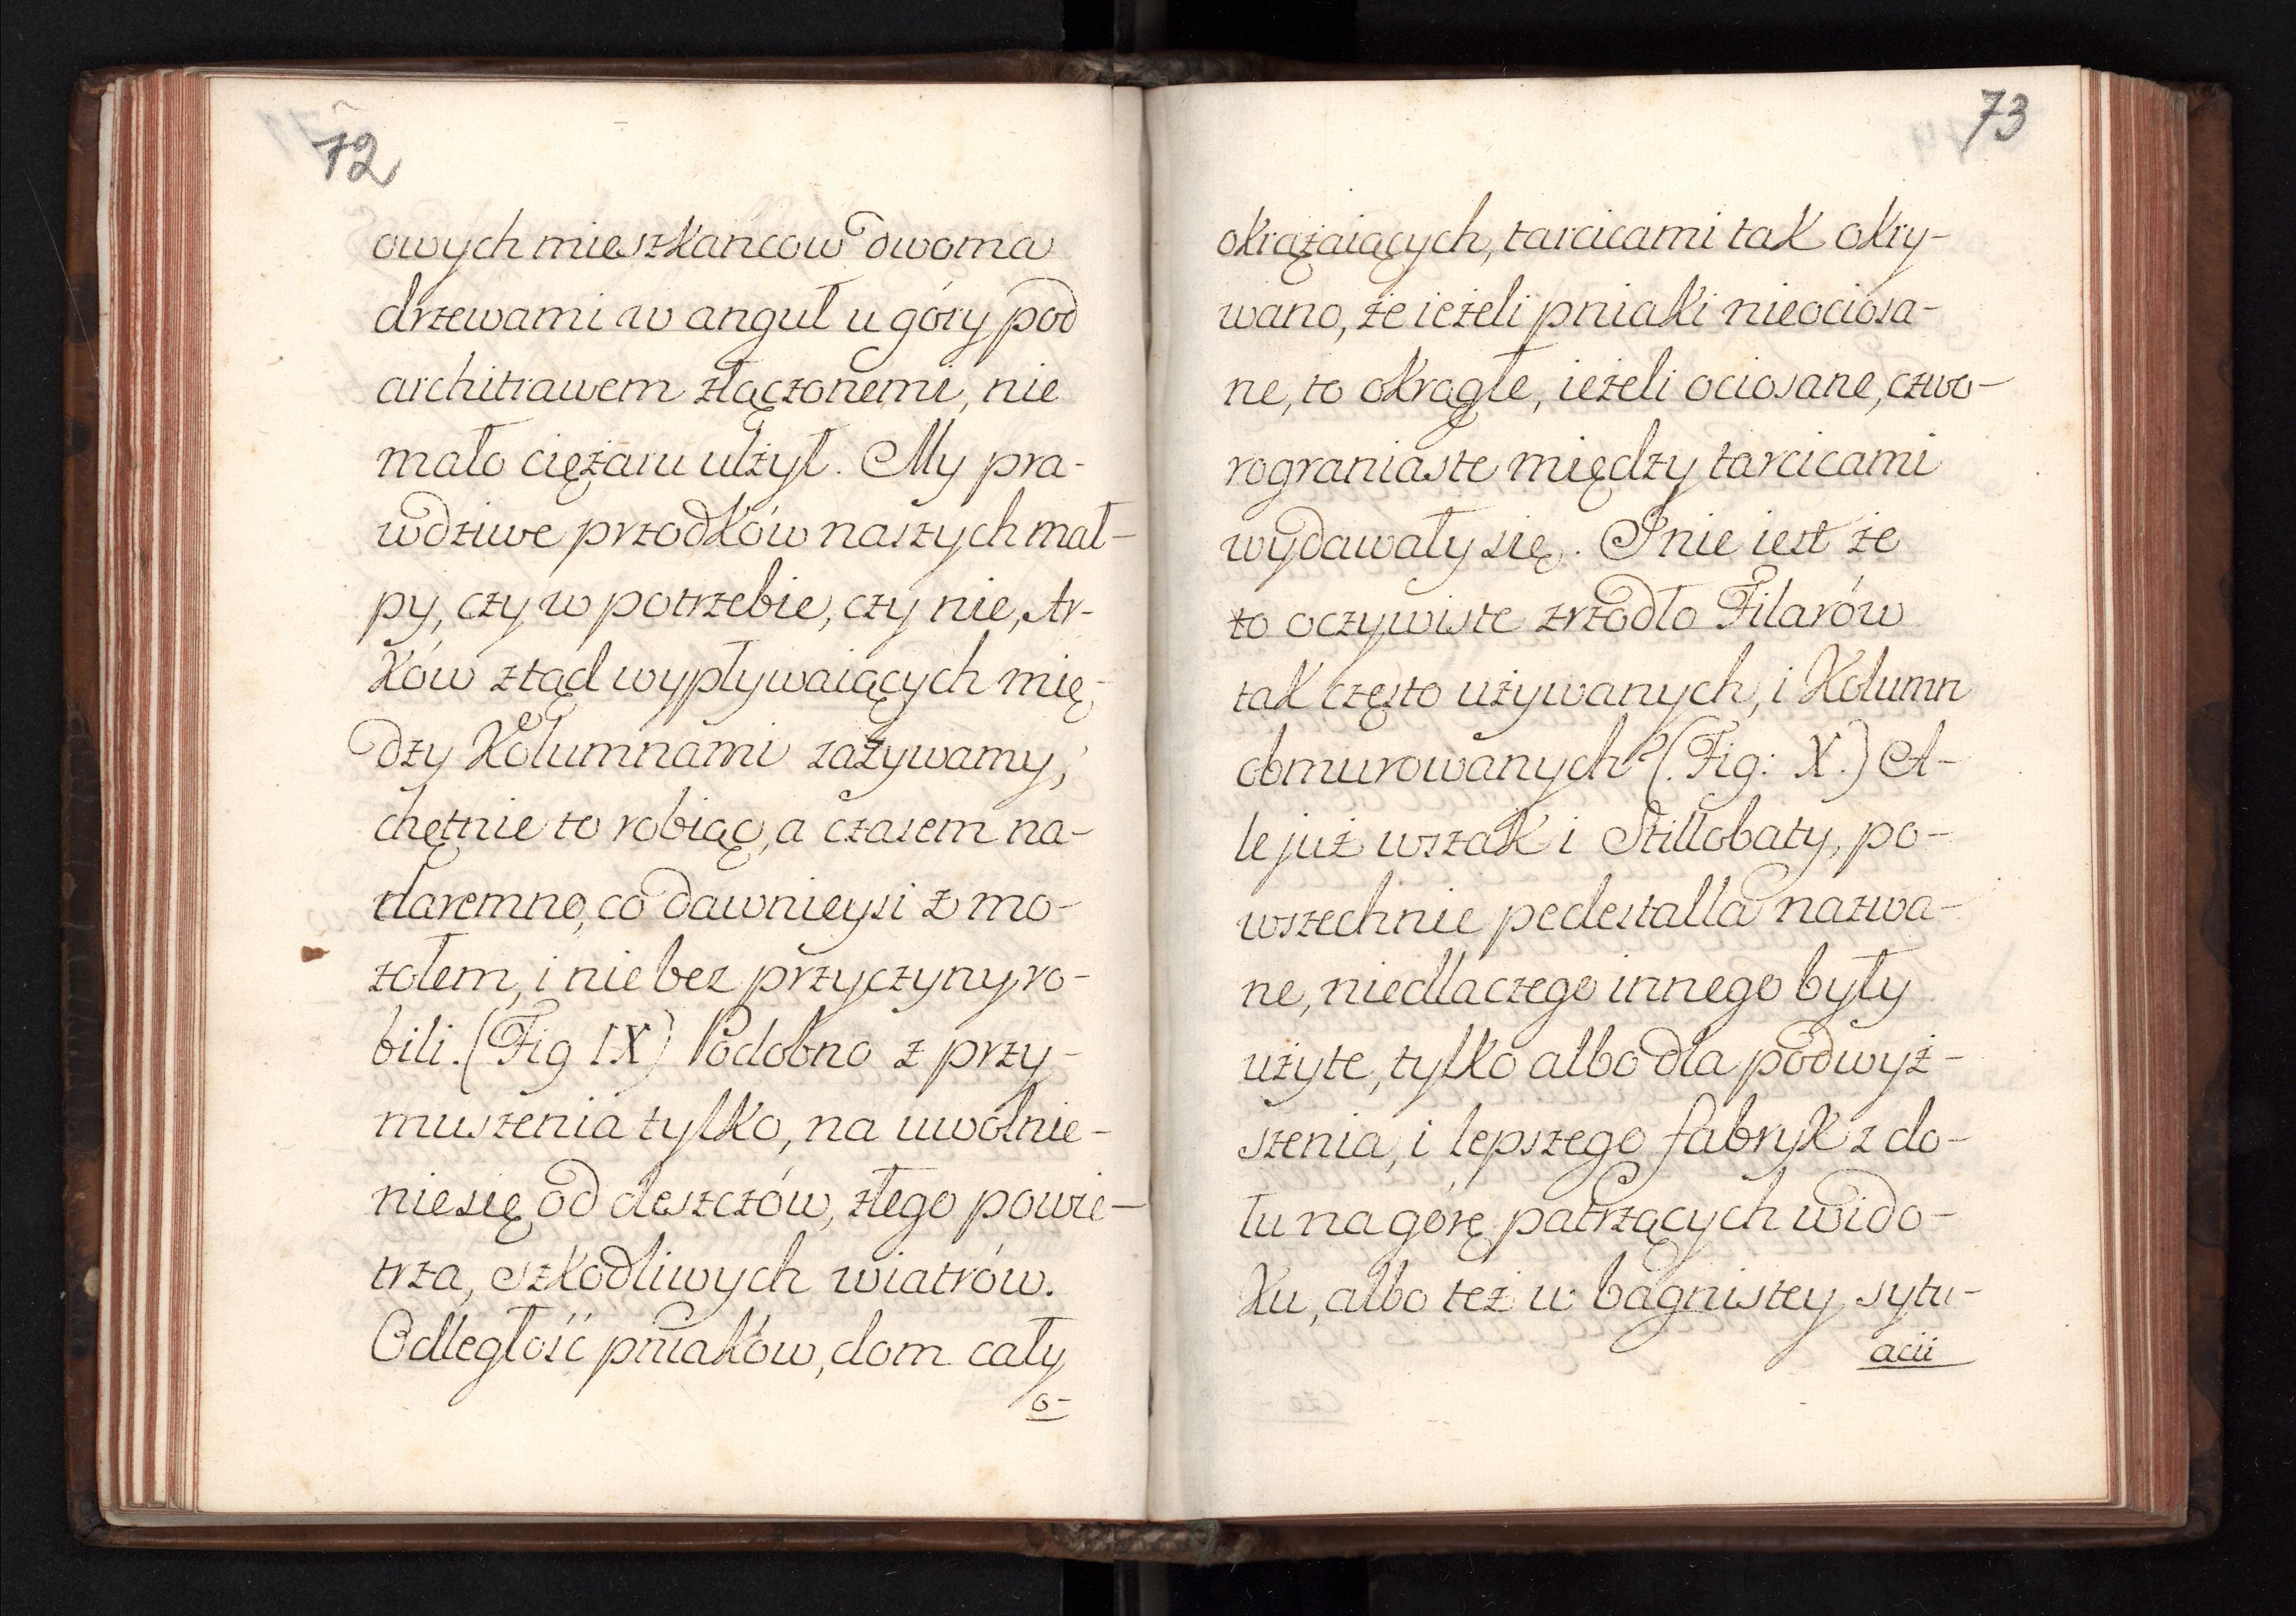 72
owych mieszkańcow dwoma
drzewami w anguł u góry pod
architrawem złączonemi, nie
mało ciężaru ulżył. My pra-
wdziwe przodków naszych mał-
py, czy w potrzebie, czy nie, Ar-
ków ztąd wypływaiących mię-
dzy Kolumnami zażywamy,
chętnie to robiąc, a czasem na-
daremno, co dawnieysi z mo-
zołem, i nie bez przyczyny ro-
bili. (Fig IX) Podobno z przy-
muszenia tylko, na uwolnie-
nie się od deszczów, złego powie-
trza, szkodliwych wiatrów.
Odległość pniaków, dom cały
o-
73
okrążaiących, tarcicami tak okry-
wano, że ieżeli pniaki nieociosa-
ne, to okrągłe, ieżeli ociosane, czwo-
rograniaste między tarcicami
wydawały się. I nie iest że
to oczywiste zrzodło Filarów
tak często używanych, i Kolumn
obmurowanych? (Fig: X.) A-
le już wszak i Stillobaty, po-
wszechnie pedestalla nazwa-
ne, niedlaczego innego były
użyte, tylko albo dla podwyż-
szenia, i lepszego fabryk z do-
łu na górę patrzących wido-
ku, albo też w bagnistey sytu-
acii